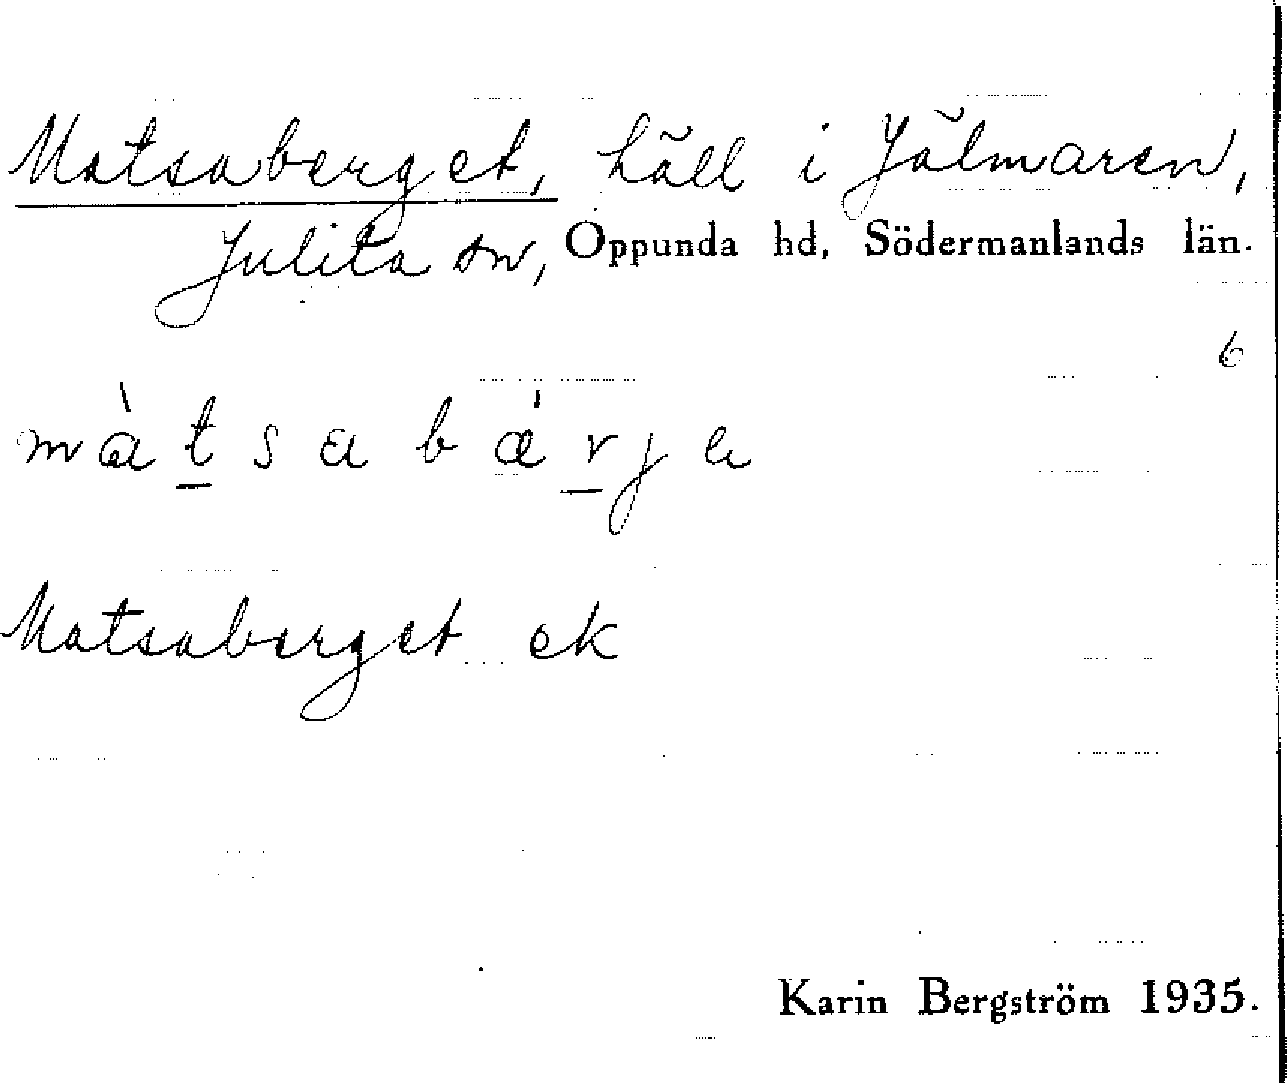 Matsaberget, häll i Jälmaren,
Julita sn, Oppunda hd, Södermanlands län.
6
màtsabǽrjɑ
Matsaberget ek
Karin Bergström 1935.